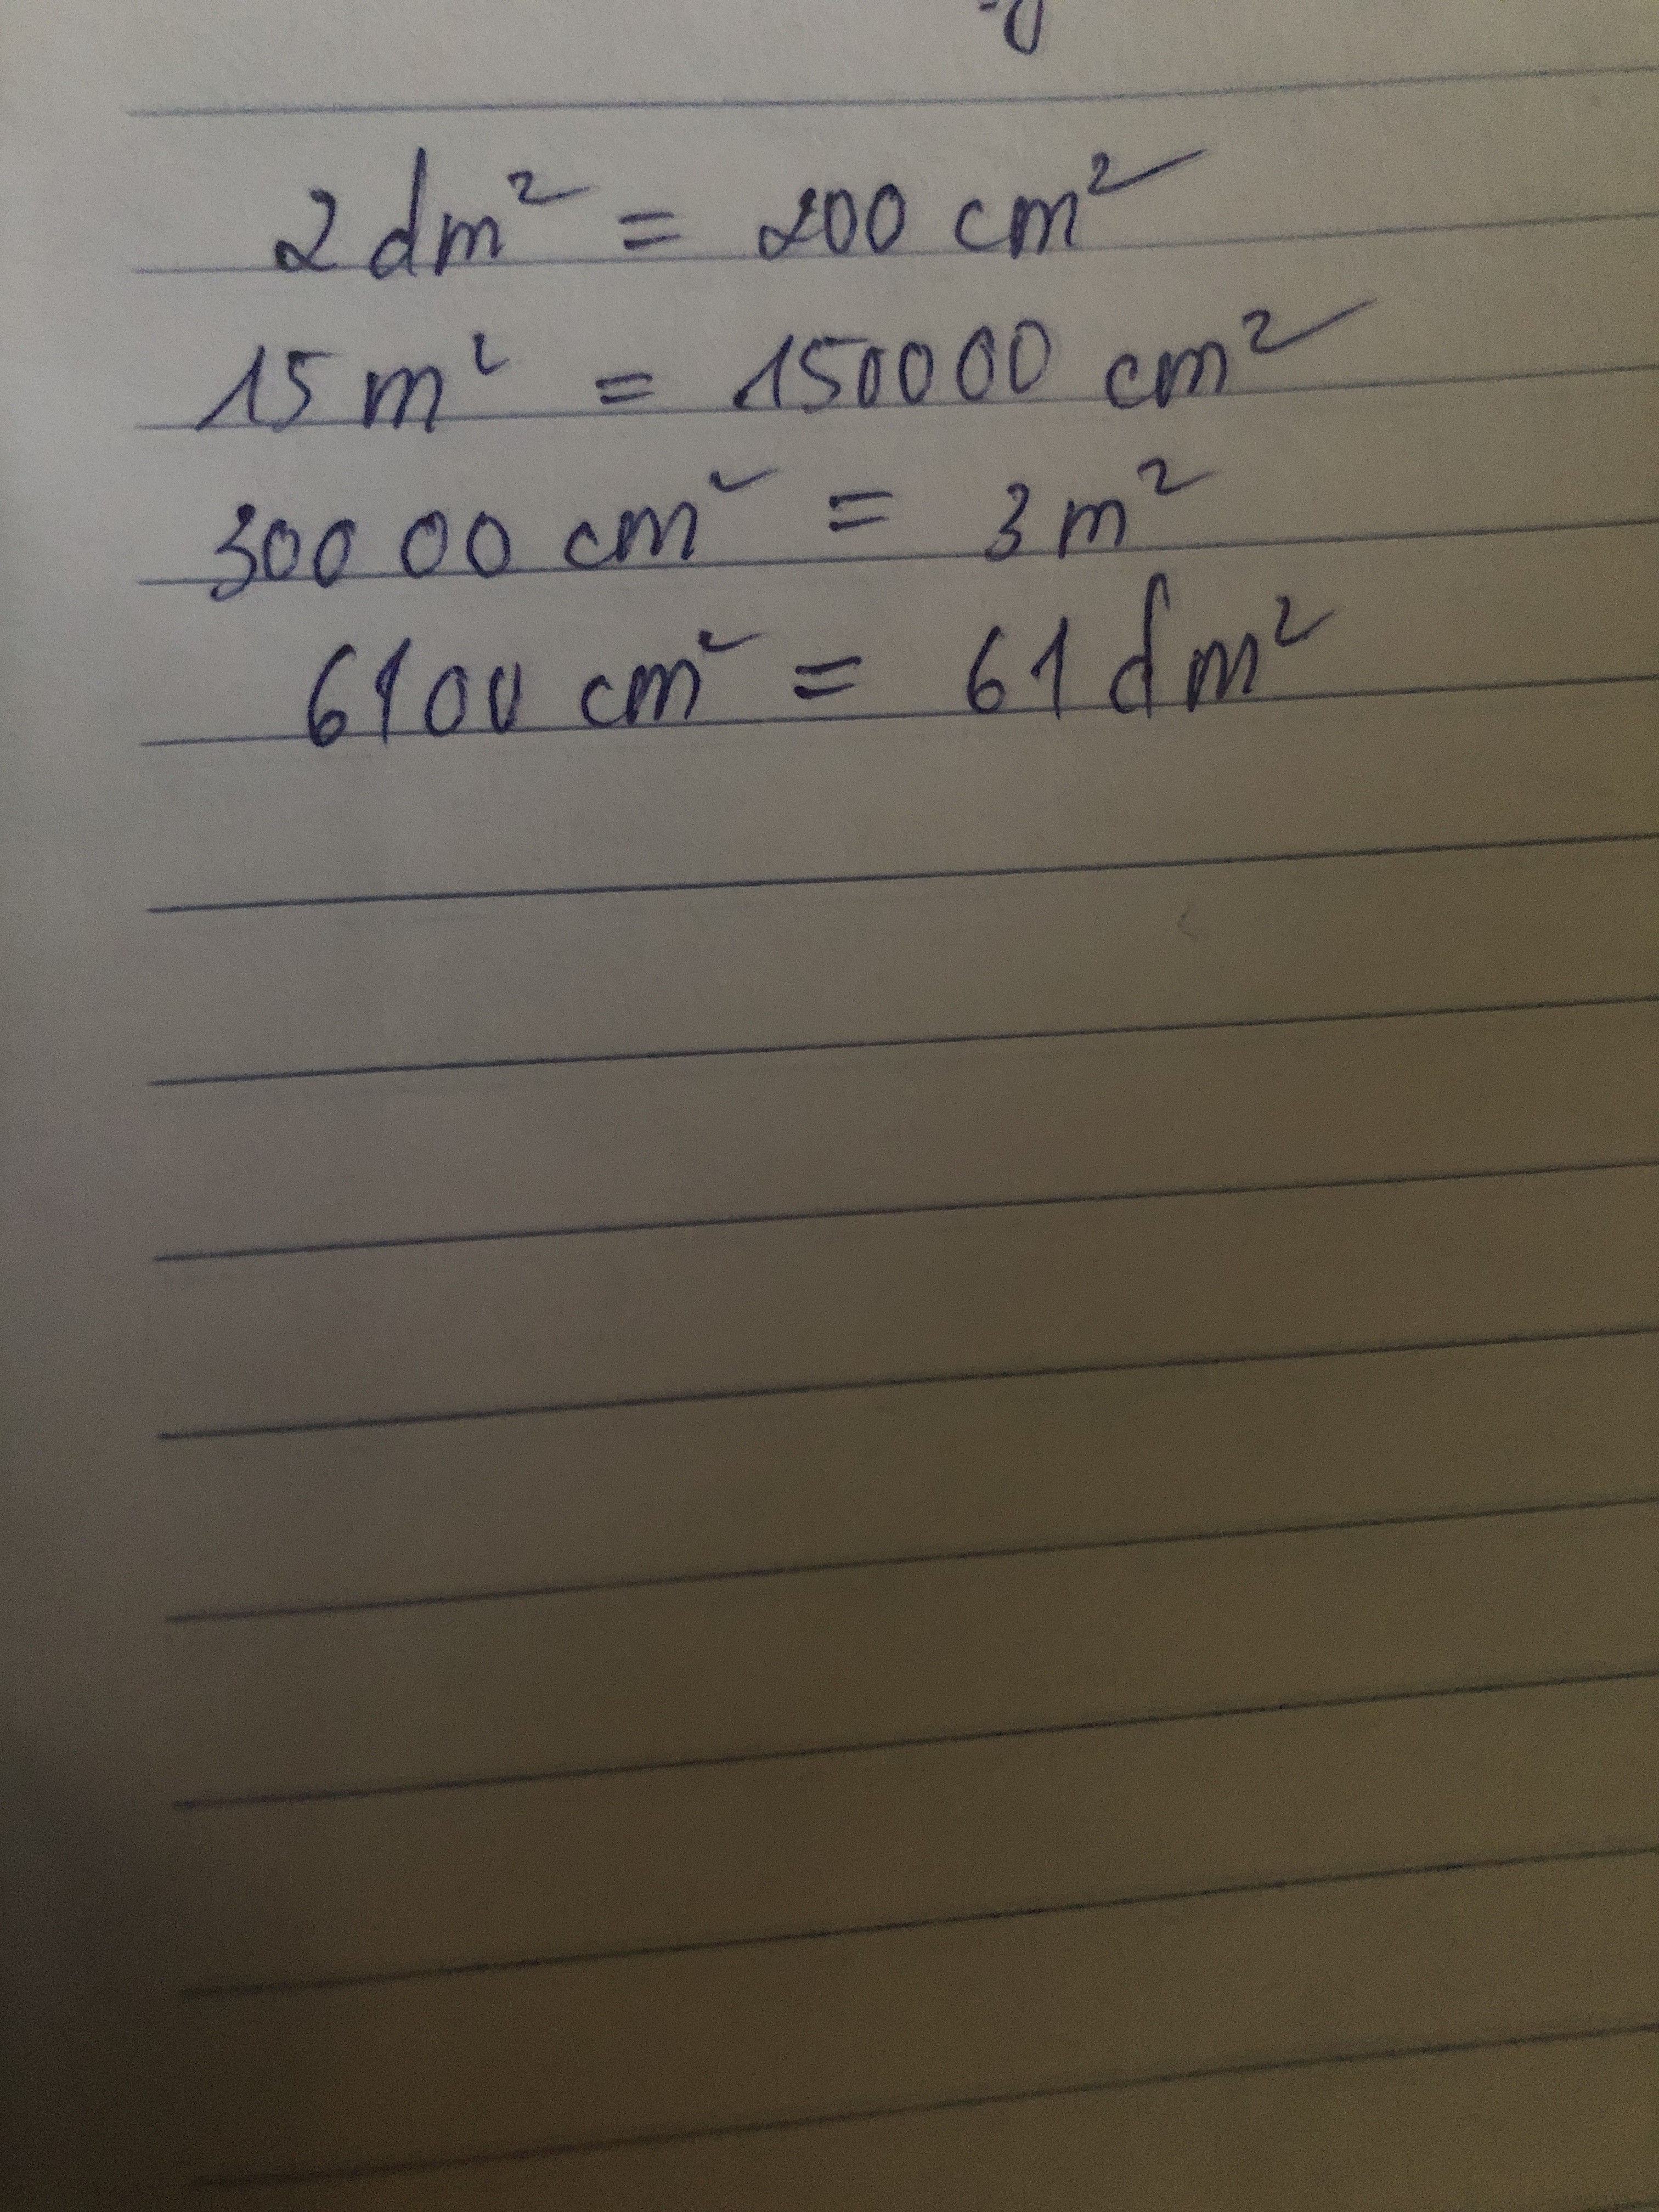 2 dm² = 200 cm²
15 m² = 150000 cm²
30000 cm² = 3 m²
6100 cm² = 61 dm²